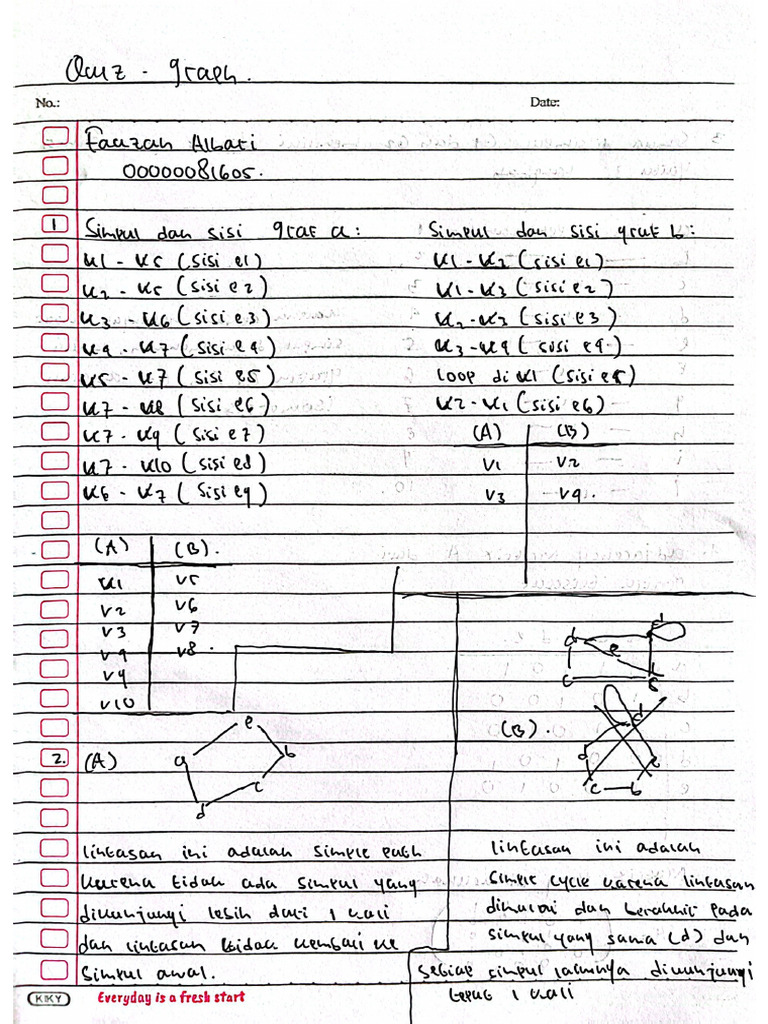 Quiz - graph.
No.:
Date:
Fauzan Albari
00000081605.
1
Simpul dan sisi graf a:
v1 - v5 (sisi e1)
v2 - v5 (sisi e2)
v3 - v6 (sisi e3)
v4 - v7 (sisi e4)
v5 - v7 (sisi e5)
v7 - v8 (sisi e6)
v7 - v9 (sisi e7)
v7 - v10 (sisi e8)
v6 - v7 (sisi e9)
Simpul dan sisi graf b:
v1 - v2 (sisi e1)
v1 - v3 (sisi e2)
v2 - v3 (sisi e3)
v3 - v4 (sisi e4)
loop di v1 (sisi e5)
v2 - v1 (sisi e6)
(A) (B)
v1 v2
v3 v4.
(A) (B).
v1 v5
v2 v6
v3 v7
v4 v8.
v9
v10
2. (A)
e
a b
c
d
(B).
d
d e
c b
d
d
c b
lintasan ini adalah simple path
karena tidak ada simpul yang
dikunjungi lebih dari 1 kali
dan lintasan tidak kembali ke
simpul awal.
lintasan ini adalah
simple cycle karena lintasan
dimulai dan berakhir pada
simpul yang sama (d) dan
setiap simpul lainnya dikunjungi
tepat 1 kali
KIKY
Everyday is a fresh start